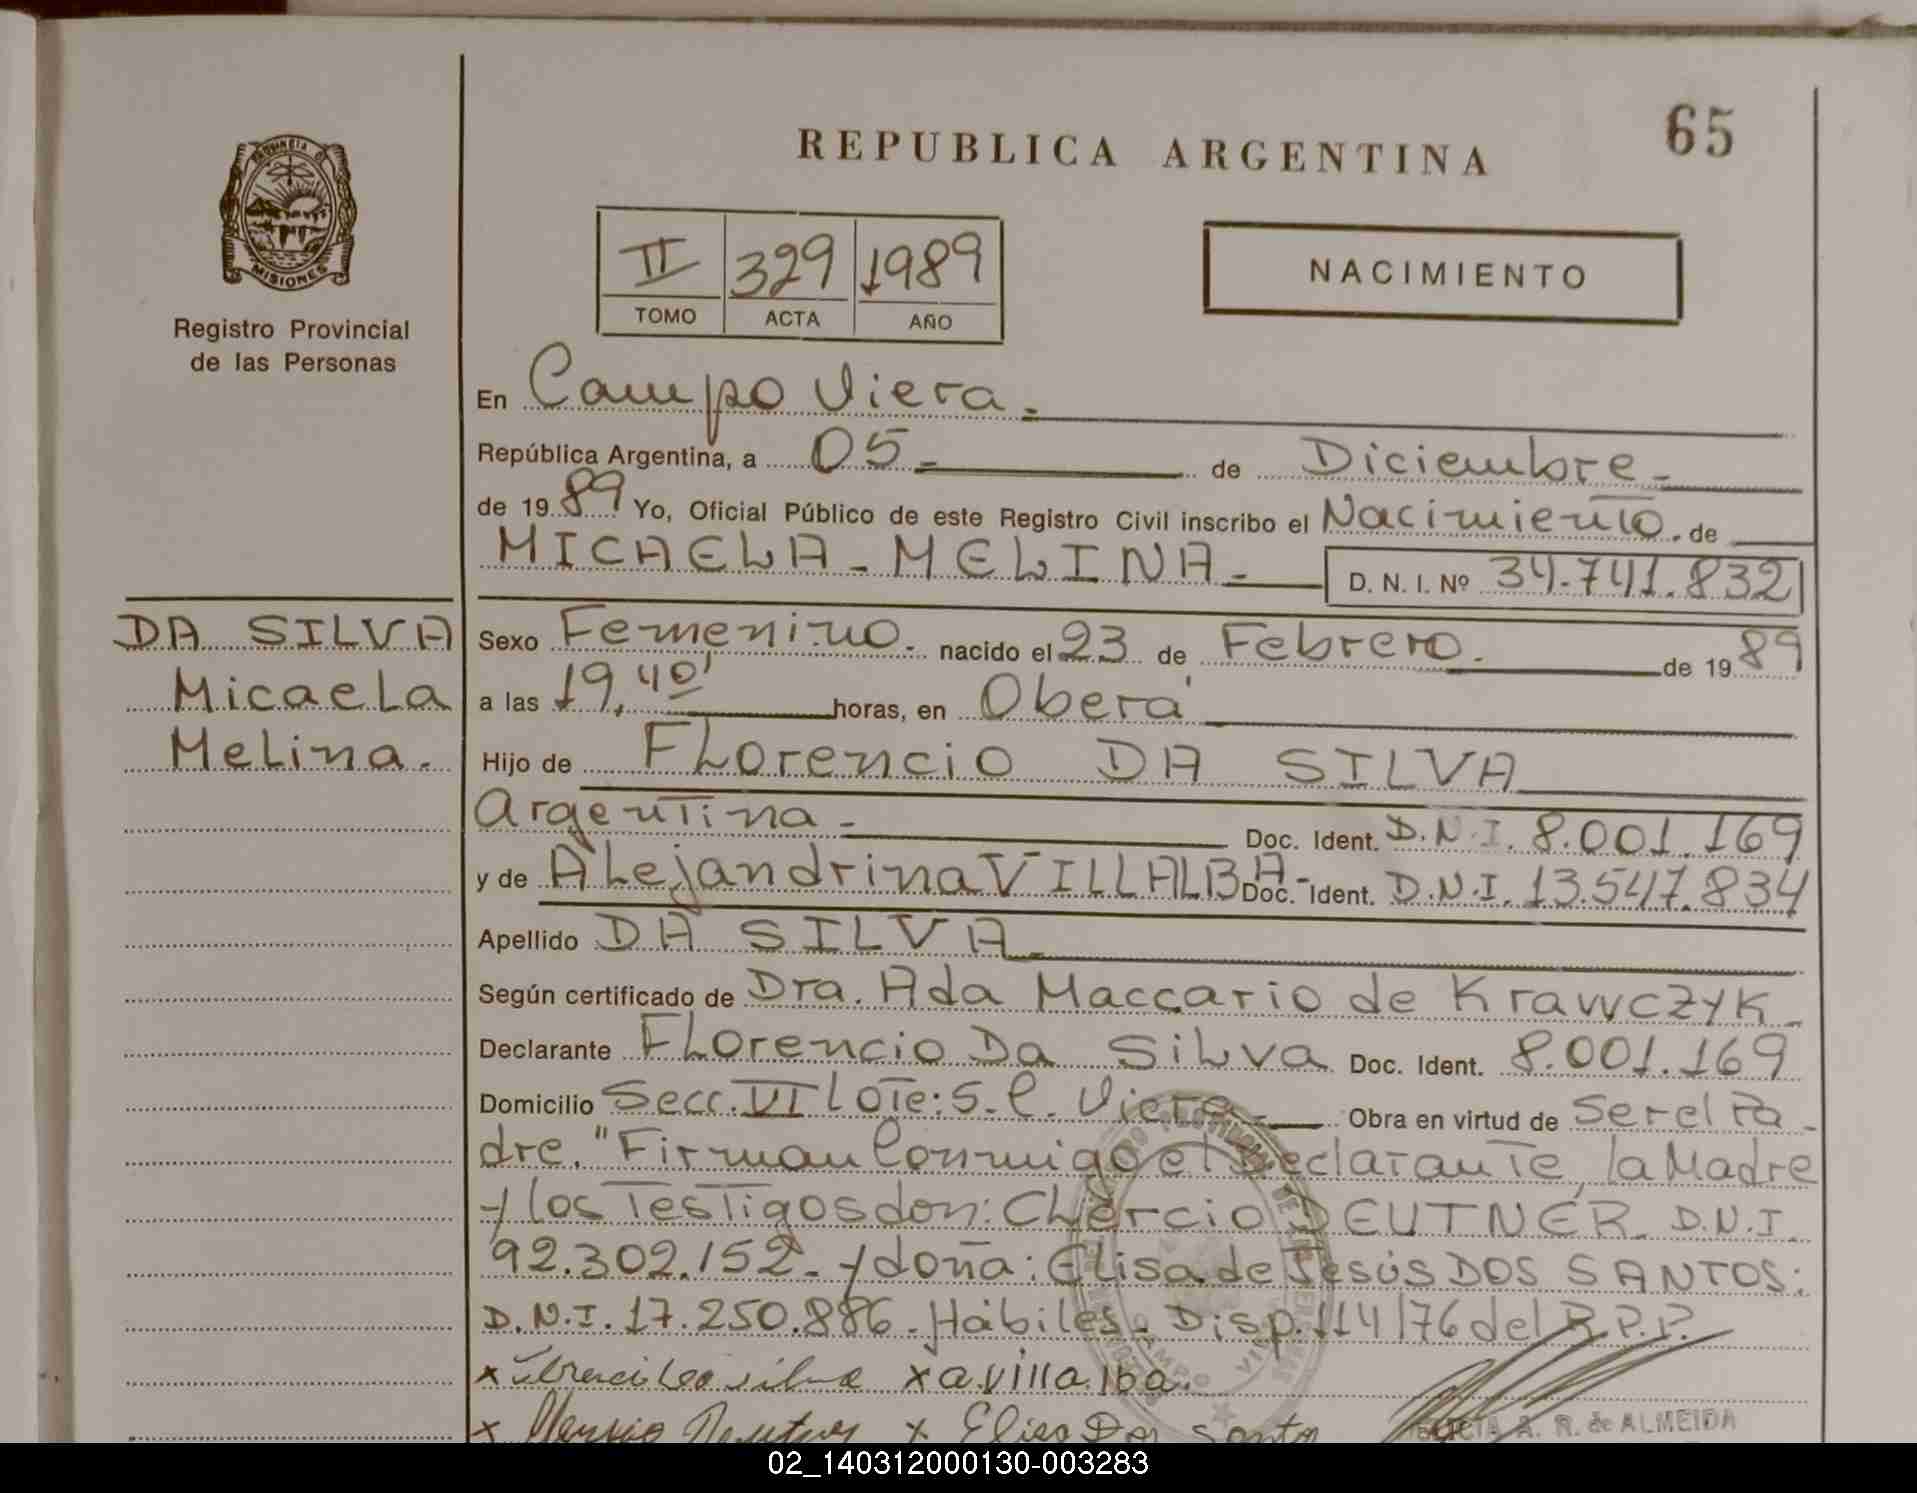 REPUBLICA ARGENTINA
65
PROVINCIA DE
MISIONES
Registro Provincial
de las Personas
II 329 1989
TOMO ACTA AÑO
NACIMIENTO
En Campo Viera.-
República Argentina, a 05.- de Diciembre.-
de 19 89 Yo, Oficial Público de este Registro Civil inscribo el Nacimiento. de
MICAELA - MELINA.- D. N. I. Nº 34.741.832
DA SILVA
Micaela
Melina.
Sexo Femenino. nacido el 23 de Febrero. de 19 89
a las 19,40' horas, en Oberá
Hijo de Florencio DA SILVA
Argentina.- Doc. Ident. D.N.I. 8.001.169
y de Alejandrina VILLALBA.- Doc. Ident. D.N.I. 13.547.834
Apellido DA SILVA.-
Según certificado de Dra. Ada Maccario de Krawczyk.-
Declarante Florencio Da Silva Doc. Ident. 8.001.169
Domicilio Secc. VI Lote: 5-C. Viera.- Obra en virtud de Ser el Pa-
dre. "Firman Conmigo el Declarante, la Madre
y los Testigos don: Chercio DEUTNER D.N.I.
92.302.152.- y doña: Elisa de Jesús DOS SANTOS:
D.N.I. 17.250.886. Hábiles. Disp. 114/76 del R.P.P.
x Da silva x a.villalba.
x x Elisa Dos Santos
A. R. de ALMEIDA
02_140312000130-003283